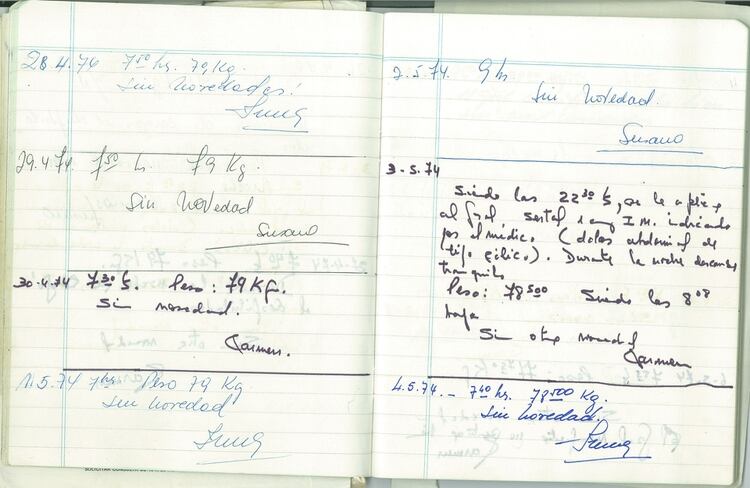 28.4.74 7 50 hs. 79 Kg.
Sin novedades!
29.4.74. 7 50 h. 79 Kg.
Sin Novedad
Susana
30.4.74 7 30 h Peso: 79 Kg.
Sin novedad.
Carmen.
1.5.74 7 hs Peso 79 Kg
Sin novedad
2.5.74. 9 hs
Sin Novedad.
Susana
3.5.74
Siendo las 22 30 h, se le aplica
al Gral. 1 amp I.M. indicado
por el médico. (dolor abdominal de
tipo cólico). Durante la noche descansó
tranquilo
Peso: 78 500 Siendo las 8
baja
Sin otra novedad
Carmen
4.5.74.- 7 40 hs. 78 500 Kg.
Sin novedad.